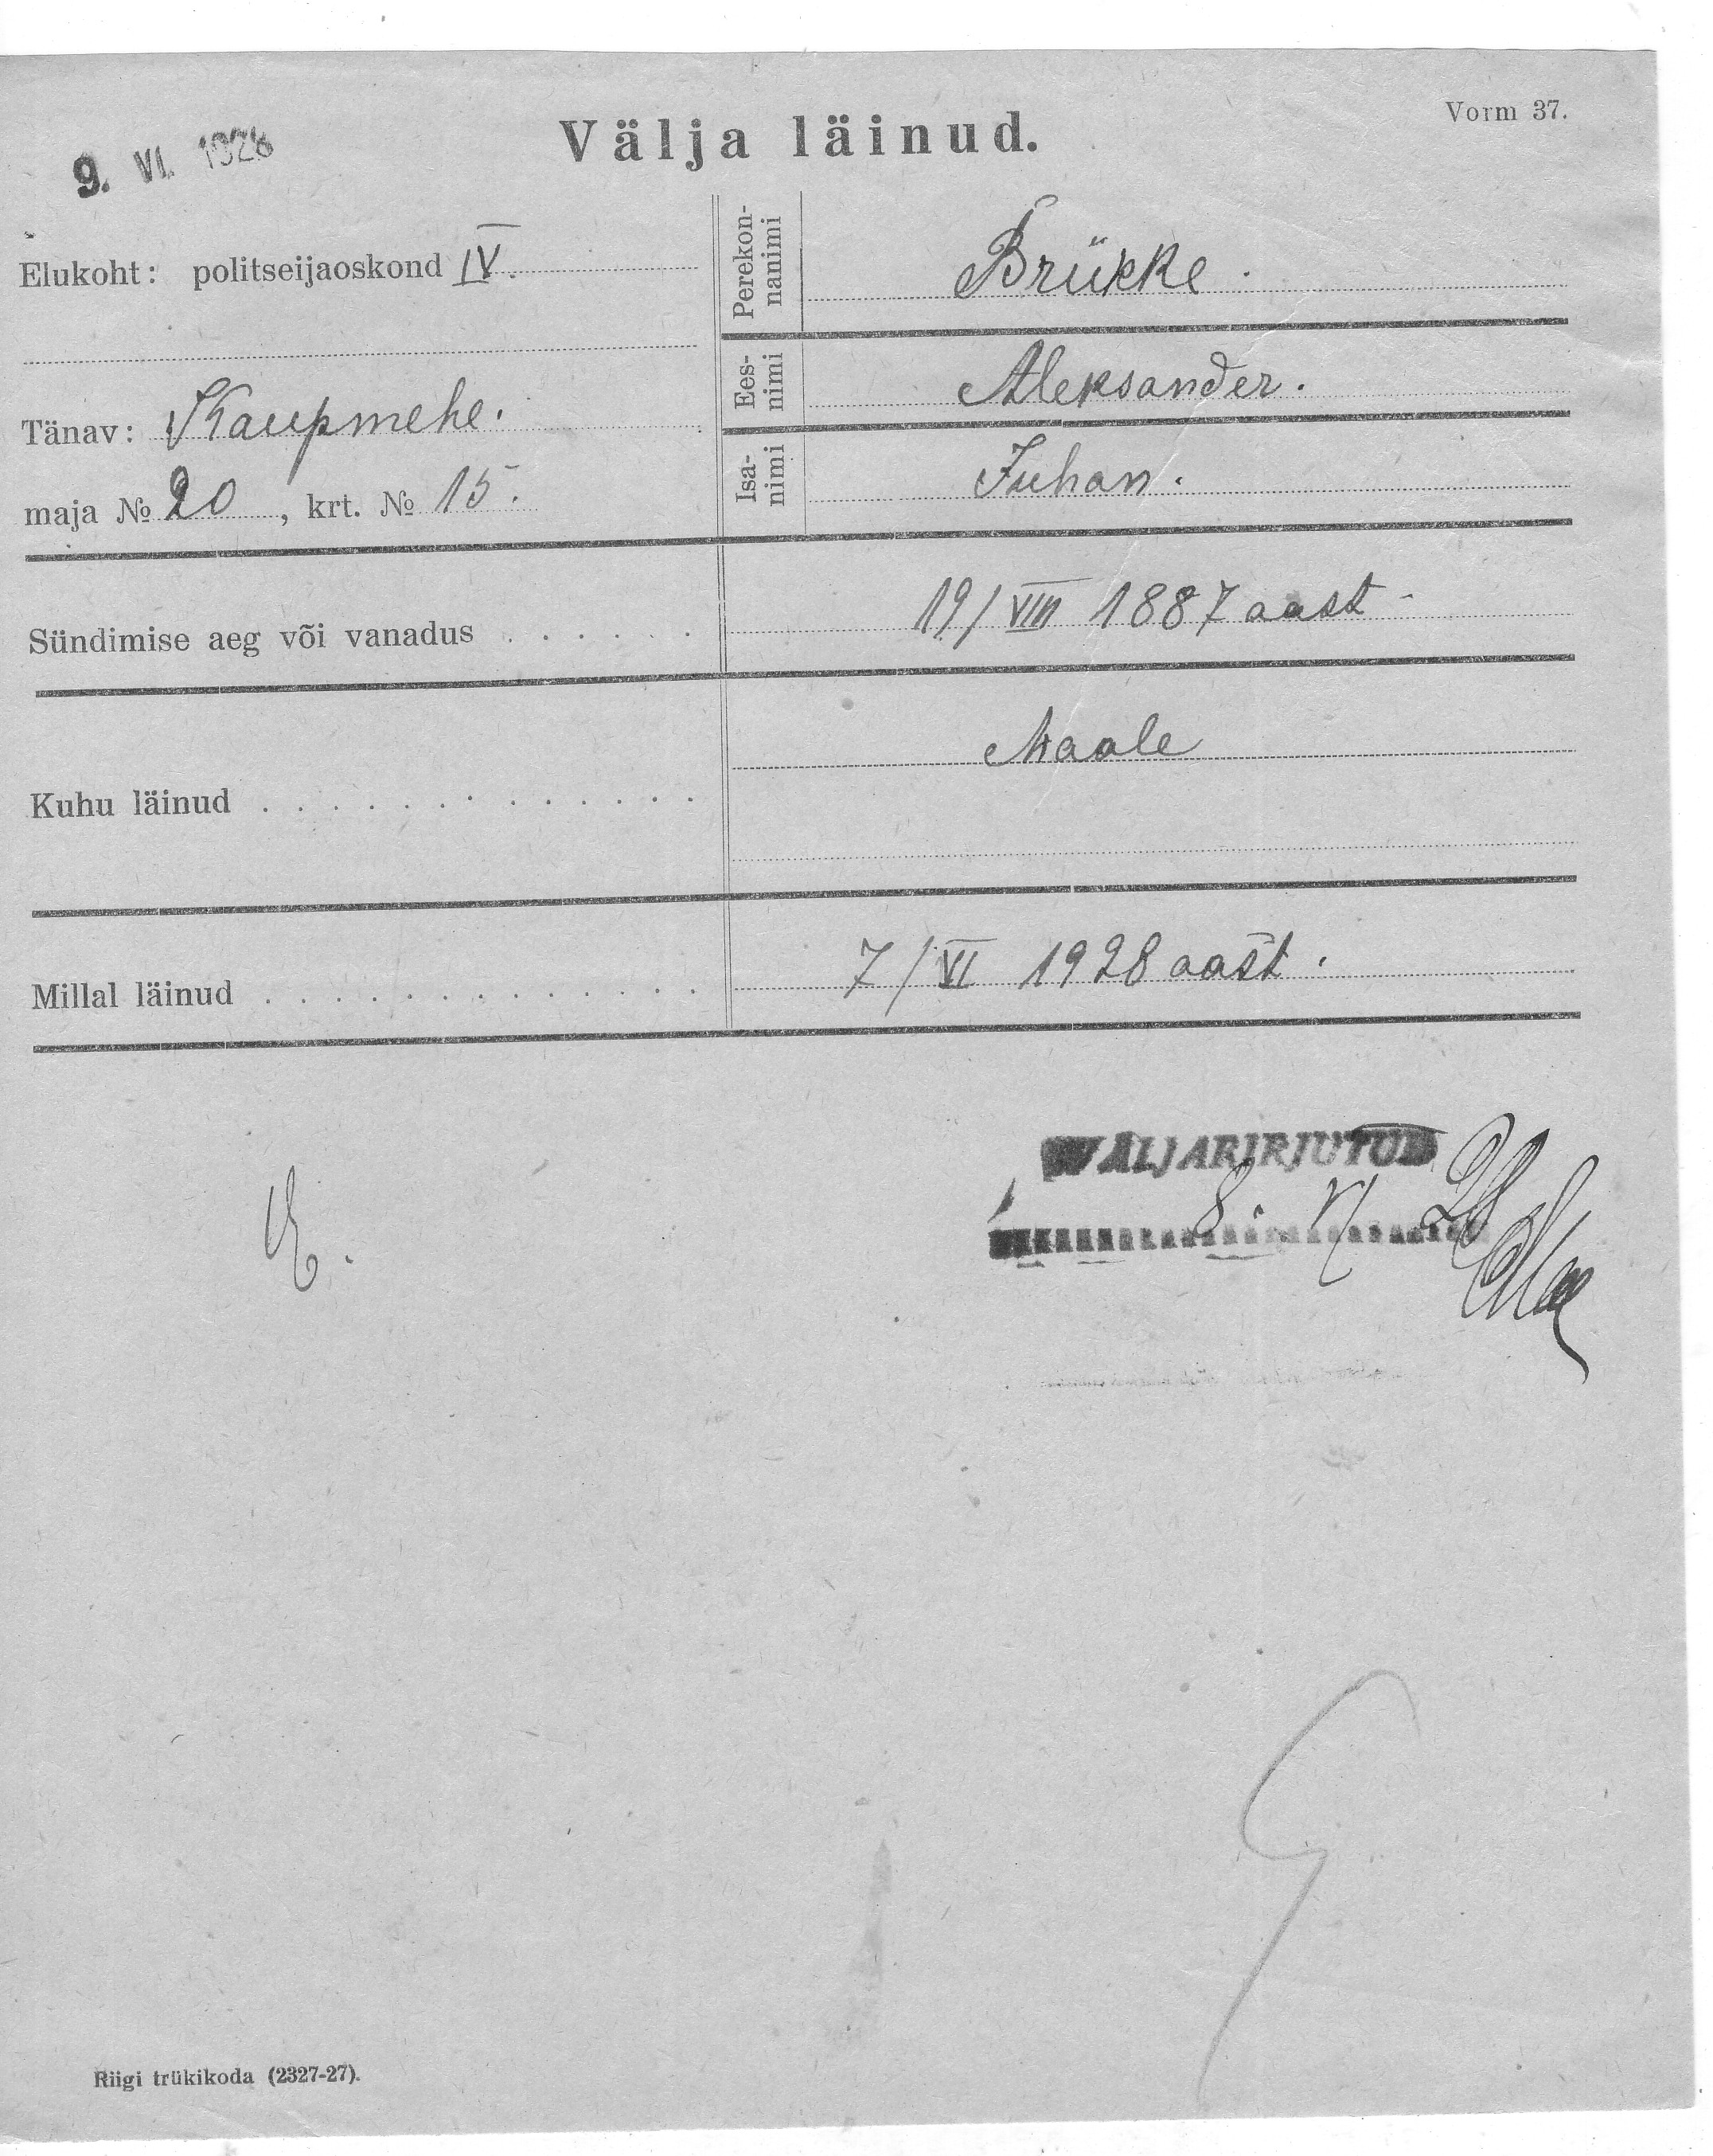 Vorm 37.
9. VI. 1928
Välja läinud.
Elukoht: politseijaoskond IV.
Tänav: Kaupmehe.
maja № 20, krt. № 15.
Perekon-
nanimi
Brükke.
Ees-
nimi
Aleksander.
Isa-
nimi
Juhan.
Sündimise aeg või vanadus . . . . . .
19/VIII 1887 aast
Kuhu läinud . . . . . . . . . . . . .
Maale
Millal läinud . . . . . . . . . . . . .
7/VI 1928 aast.
8. VI 28
Riigi trükikoda (2327-27).